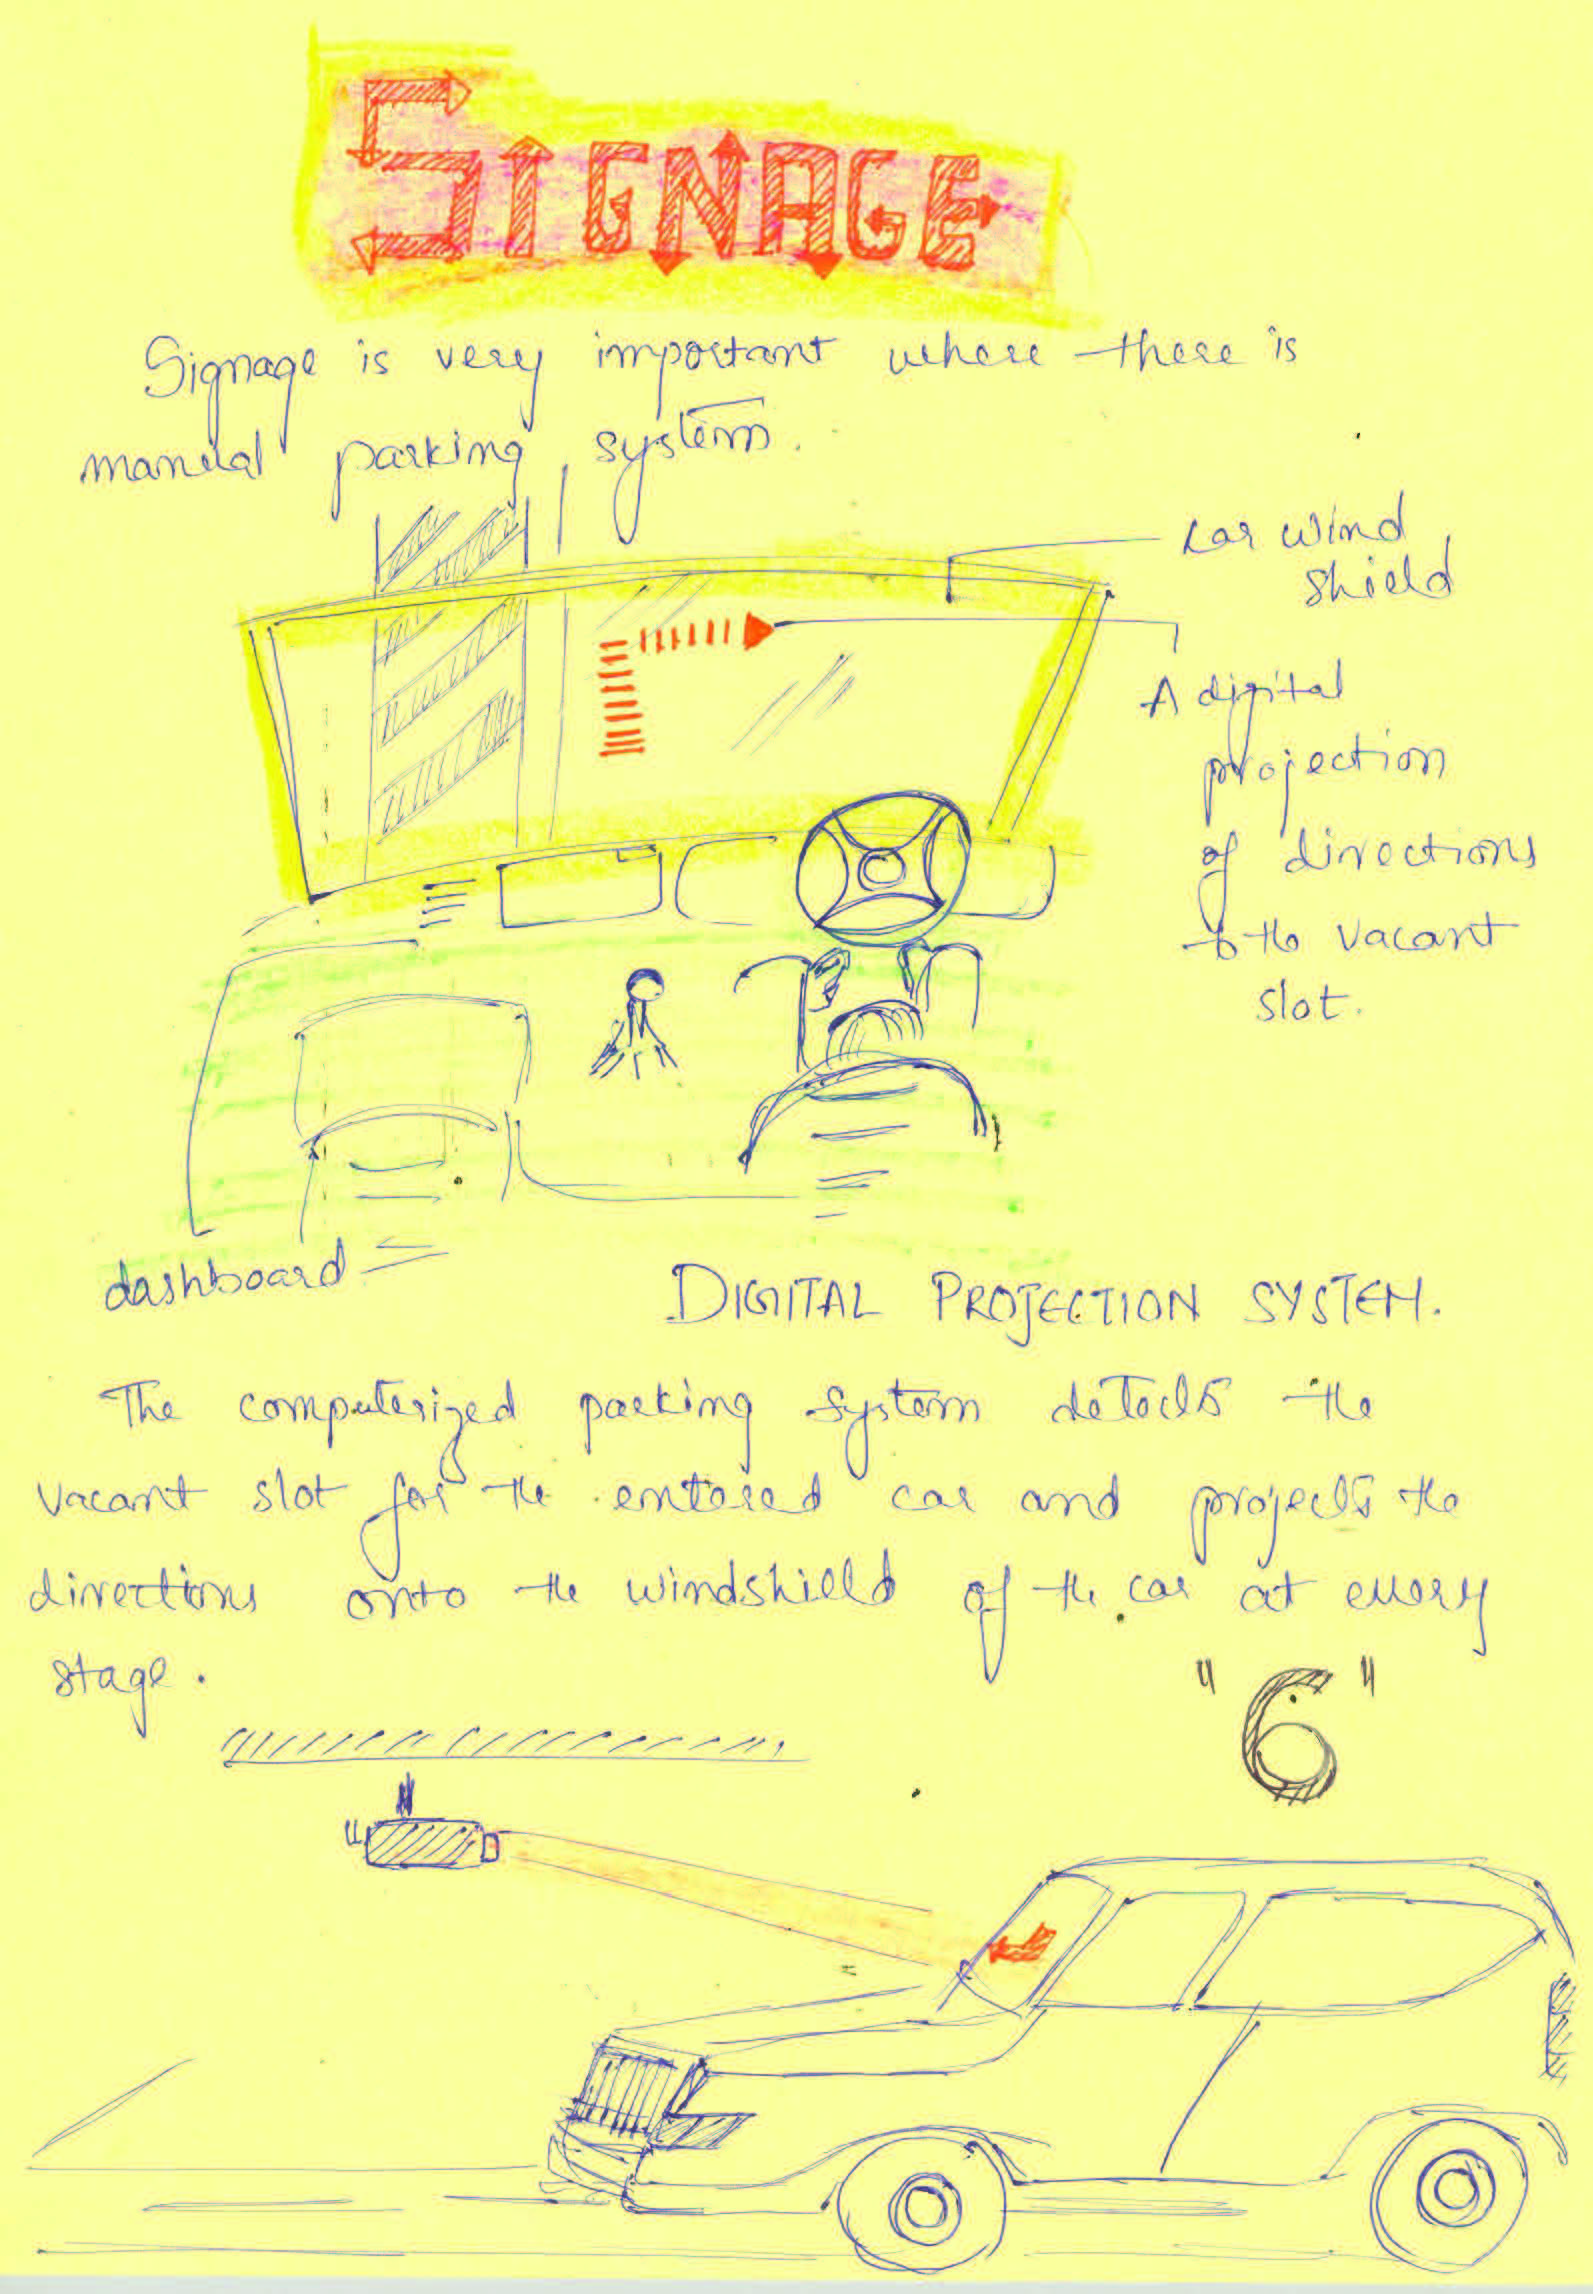 SIGNAGE
Signage is very important where there is
manual parking system.
car wind
shield
A digital
projection
of directions
to the vacant
slot.
dashboard
DIGITAL PROJECTION SYSTEM.
The computerized parking system detects the
vacant slot for the entered car and projects the
directions onto the windshield of the car at every
stage.
"6"